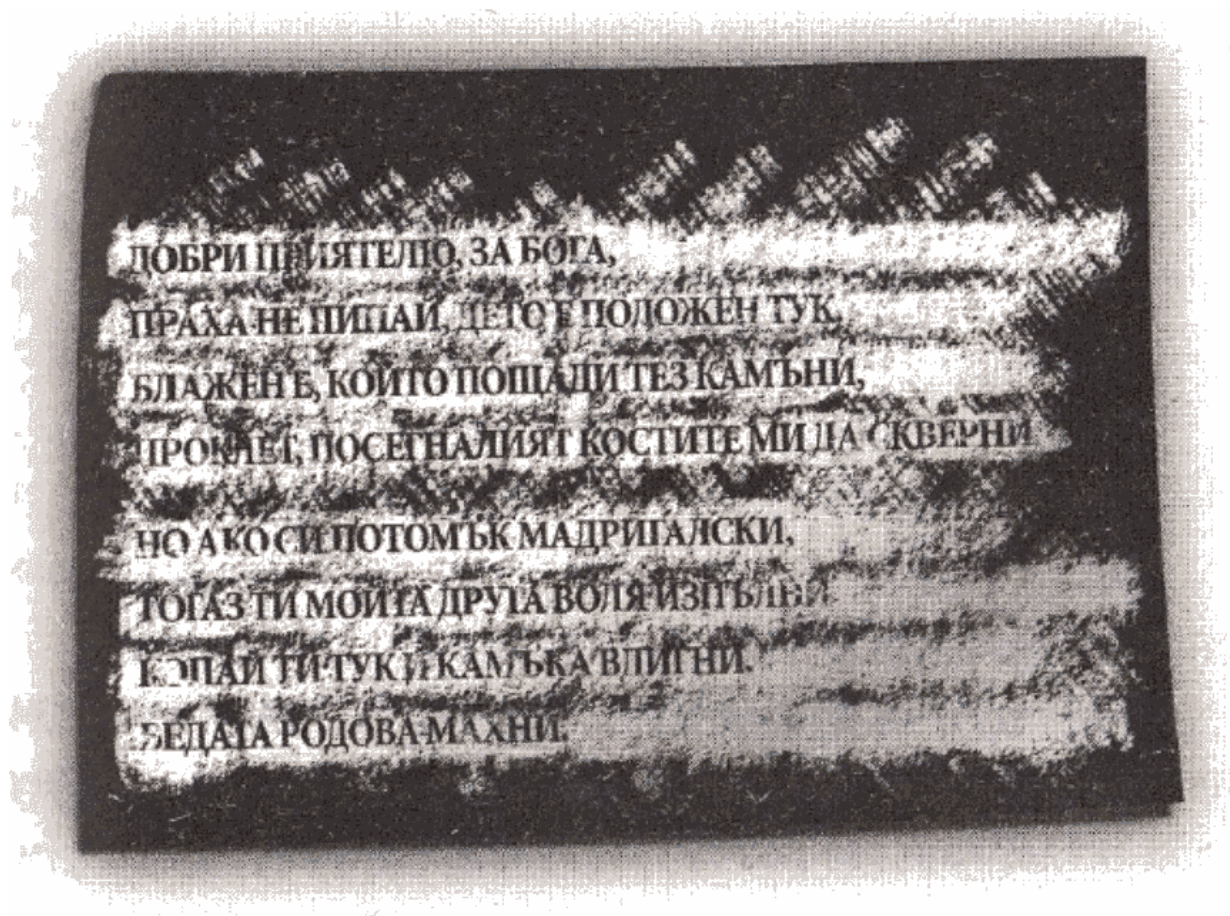 ДОБРИ ПРИЯТЕЛЮ, ЗА БОГА,
ПРАХА НЕ ПИПАЙ, ДЕТО Е ПОЛОЖЕН ТУК,
БЛАЖЕН Е, КОЙТО ПОЩАДИ ТЕЗ КАМЪНИ,
ПРОКЛЕТ, ПОСЕГНАЛИЯТ КОСТИТЕ МИ ДА СКВЕРНИ
НО АКО СИ ПОТОМЪК МАДРИГАЛСКИ,
ТОГАЗ ТИ МОЙТА ДРУГА ВОЛЯ ИЗПЪЛНИ.
КОПАЙ ТИ ТУК И КАМЪКА ВДИГНИ.
БЕДАТА РОДОВА МАХНИ.